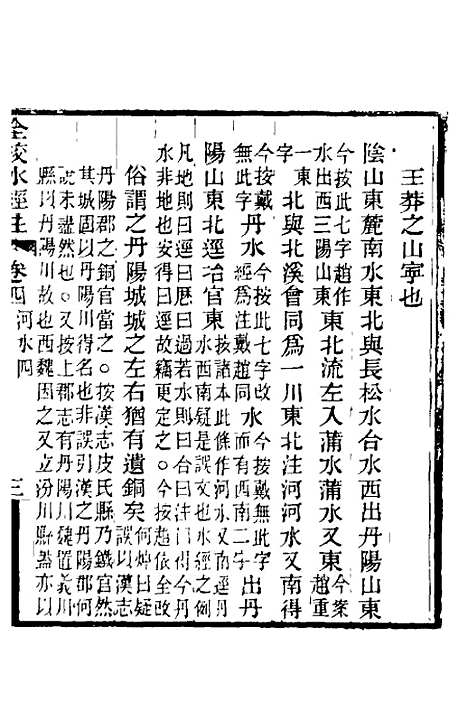 王莽之山寧也
陰山東麓南水東北與長松水合水西出丹陽山東
今按此七字趙作水出西三陽山東 東北流左入蒲水蒲水又東 今案趙重
一東字 北與北溪會同爲一川東北注河河水又南得
今按戴無此字 丹水 今按此七字改經爲注戴趙同 水 今按戴無此字而有西南二字 出丹
陽山東北逕冶官東 按諸本此條作河水又南逕丹水西南疑是誤文也水經之例
凡地則曰逕曰歷曰過若水則曰合曰注門得今丹
水非地也安得曰逕故藉更定之○今按趙依全改
俗謂之丹陽城城之左右猶有遺銅矣 何焯曰疑誤以漢志
丹陽郡之銅官當之○按漢志皮氏縣乃鐵官然
其城固以丹陽川得名也非誤引漢之丹陽郡何
說未盡然也○又按上郡志有丹陽川魏置義川
縣以丹陽川故也西魏因之又立汾川縣蓋亦以
全校水經注 卷四 河水四 三